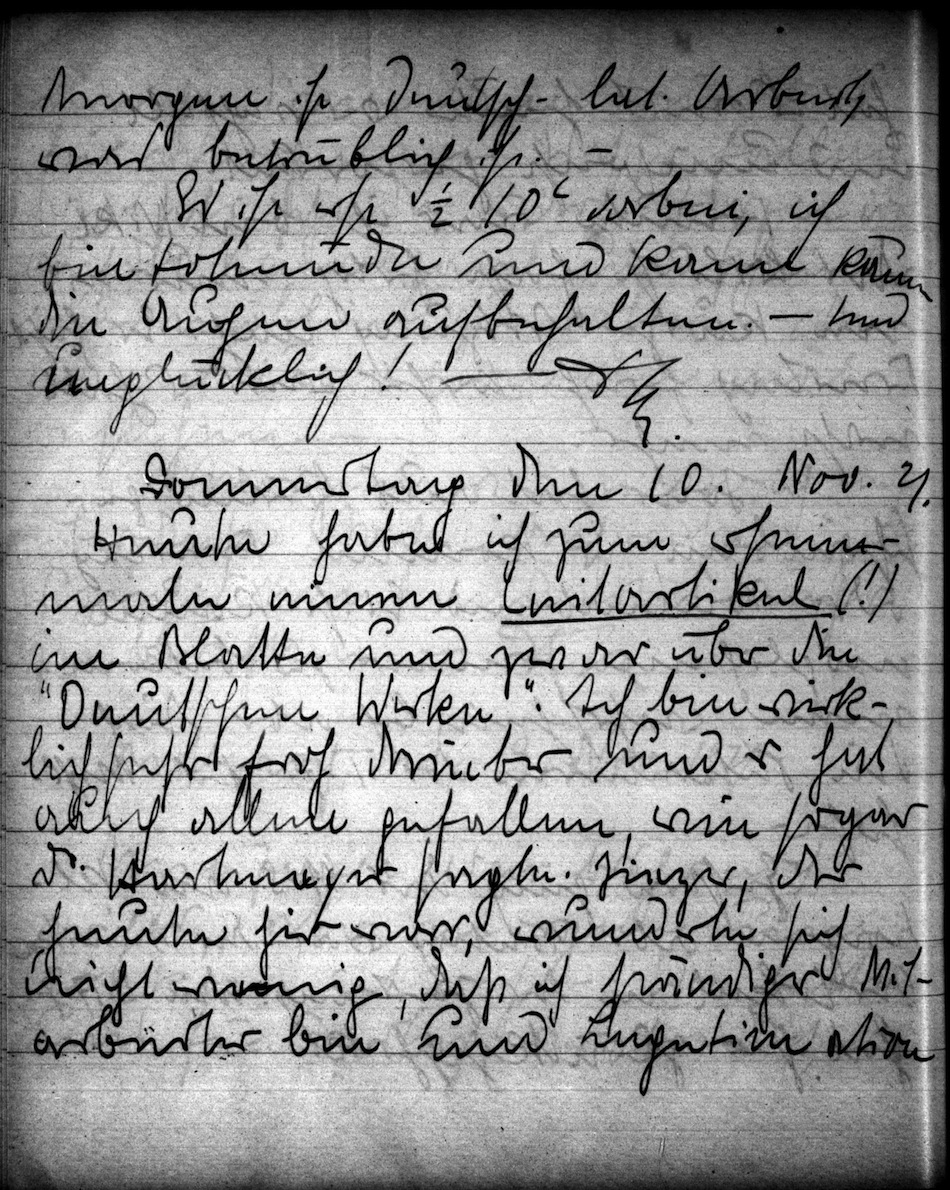 Morgen ist deutsch-lat. Arbeit,
was betrüblich ist. –
Es ist erst ½ 10ʰ vorbei, ich
bin totmüde und kann kaum
die Augen aufbehalten. – Und
unglücklich! —
Donnerstag den 10. Nov. 21.
Heute habe ich zum ersten-
male einen Leitartikel (!)
im Blatte und zwar über die
"Deutschen Werke". Ich bin wirk-
lich sehr froh darüber und er hat
auch allen gefallen, wie sogar
D. Hartmeyer sagte. Hinzer, der
heute hier war, wunderte sich
nicht wenig, daß ich ständiger Mit-
arbeiter bin und Legitimation